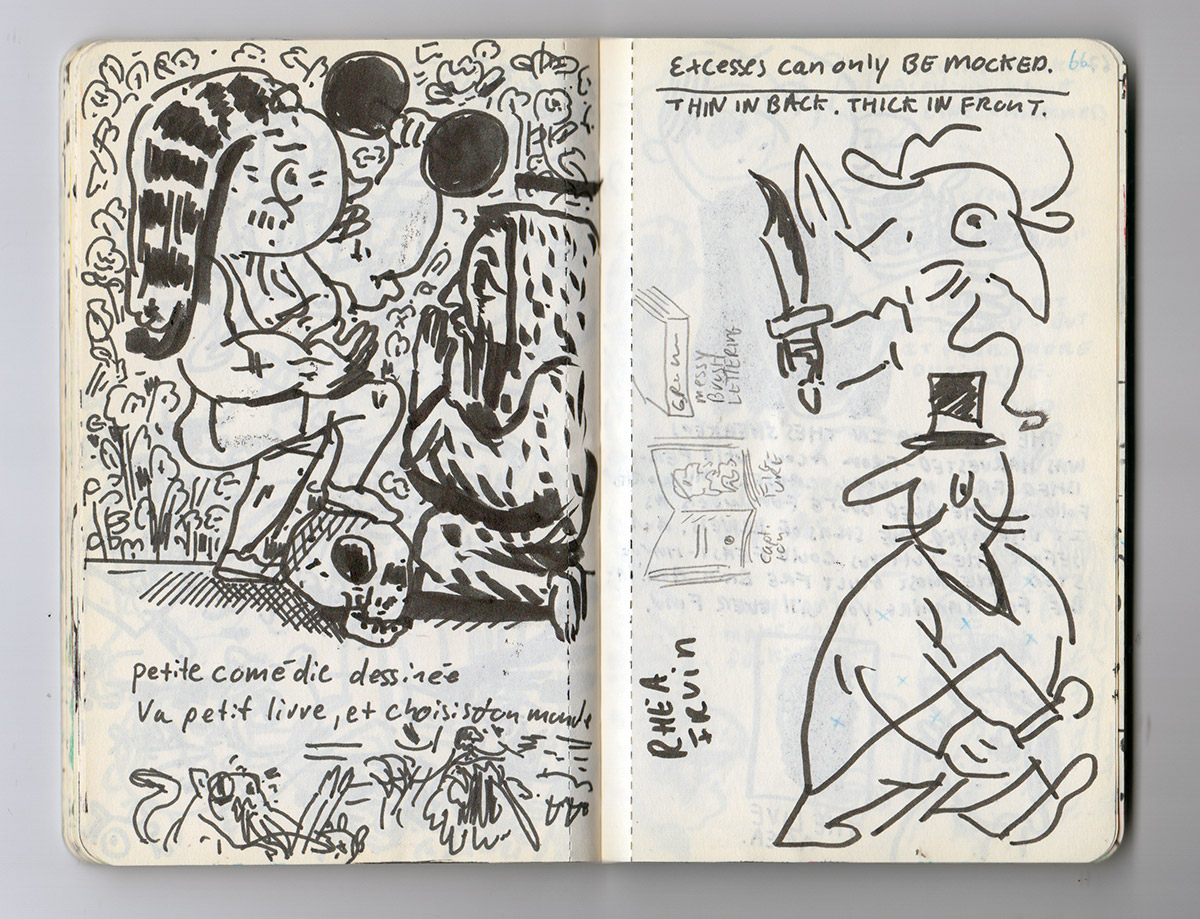 petite comédie dessinée
Va petit livre, et choisis ton monde
Excesses can only BE MOCKED.
66
THIN IN BACK. THICK IN FRONT.
messy
Brush
LETTERING
RHEA
IRVIN